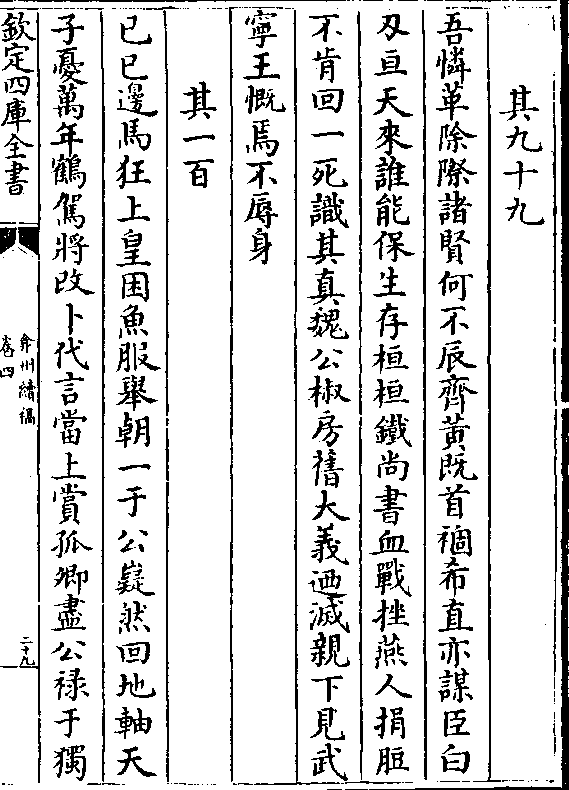 其九十九
吾憐革除際諸賢何不辰齊黄既首禍希直亦謀臣白
刄亘天來誰能保生存桓桓鐵尚書血戰挫燕人捐脰
不肯回一死識其真魏公椒房舊大義廼滅親下見武
寧王慨焉不辱身
其一百
已已邊馬狂上皇困魚服舉朝一于公嶷然回地軸天
子憂萬年鶴駕將改卜代言當上賞孤卿盡公禄于獨
欽定四庫全書
弇州續稿
卷四
二十九